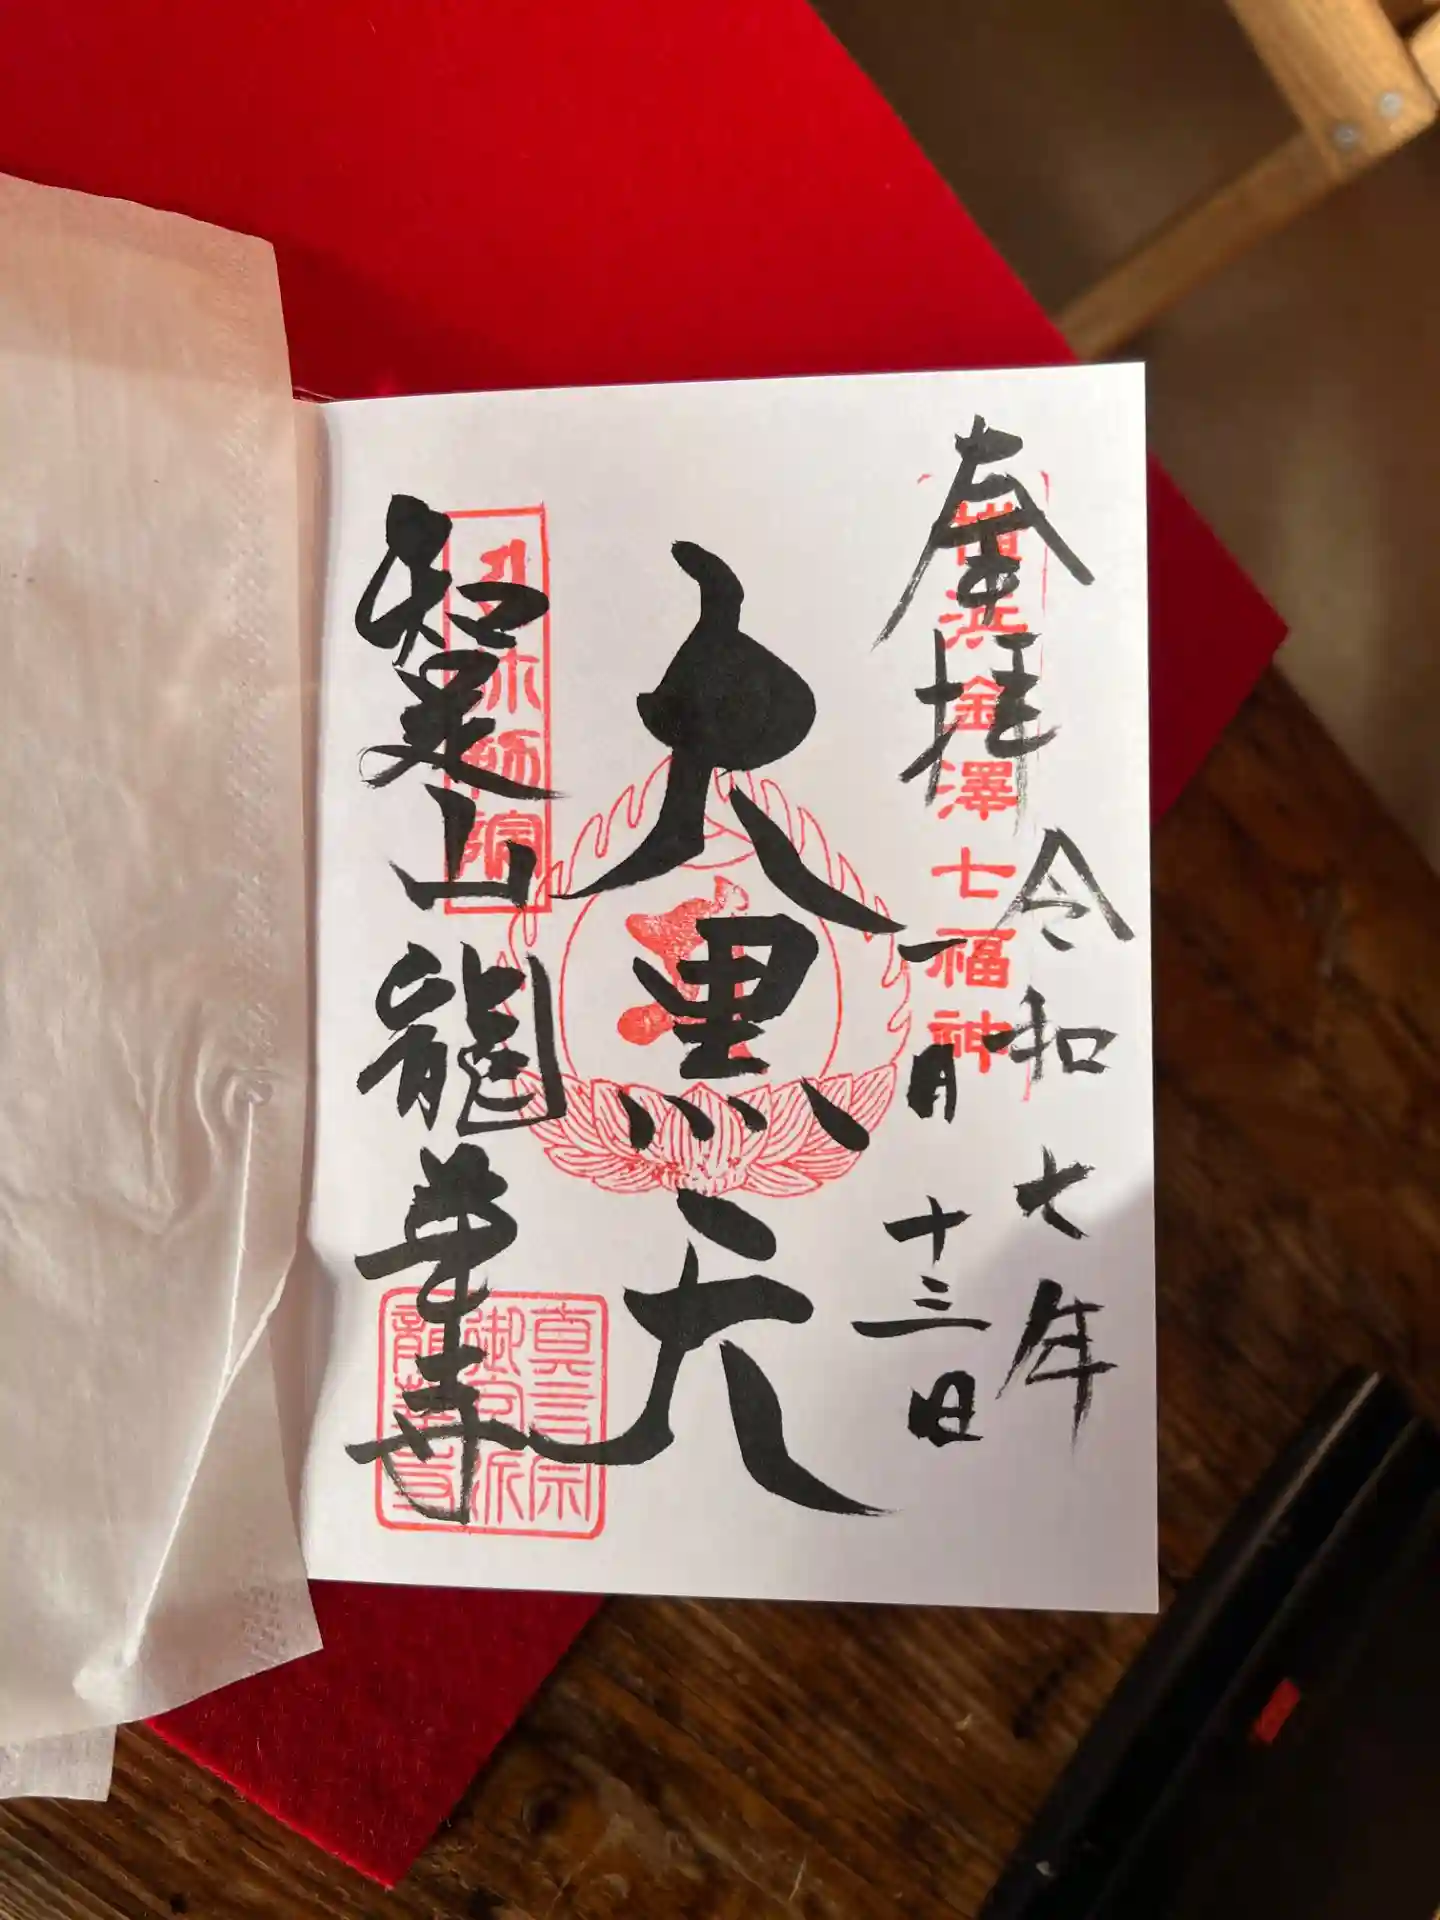 奉拝
横浜金澤七福神
令和七年
一月十三日
大黒天
知足山龍華寺
真言宗
御室派
龍華寺